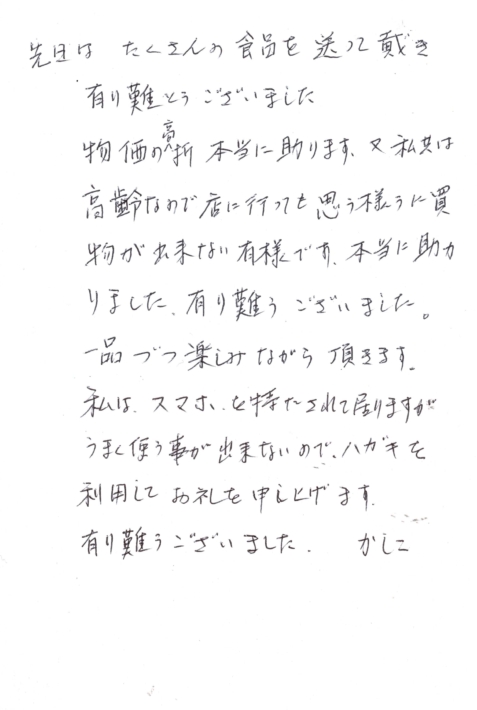 先日は たくさんの食品を送って戴き
有り難とうございました
物価の高折 本当に助ります、又私共は
高齢なので店に行っても思う様うに買
物が出来ない有様です、本当に助か
りました、有り難うございました。
一品づつ楽しみながら頂きます。
私は、スマホを持たされて居りますが
うまく使う事が出来ないので、ハガキを
利用してお礼を申し上げます
有り難うございました. かしこ